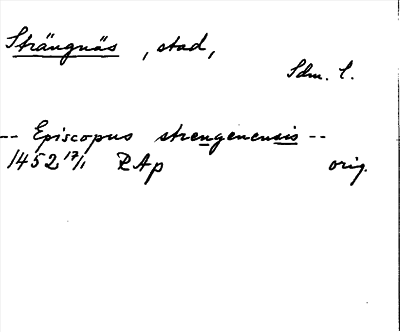 Strängnäs, stad,
Sdm. l.
-- Episcopus strengenensis --
1452 17/1 RAp orig.